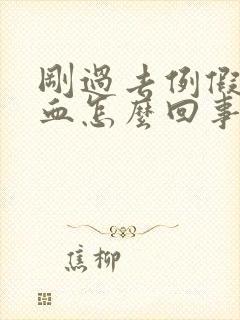 剛過去例假
血怎麼回事
焦柳